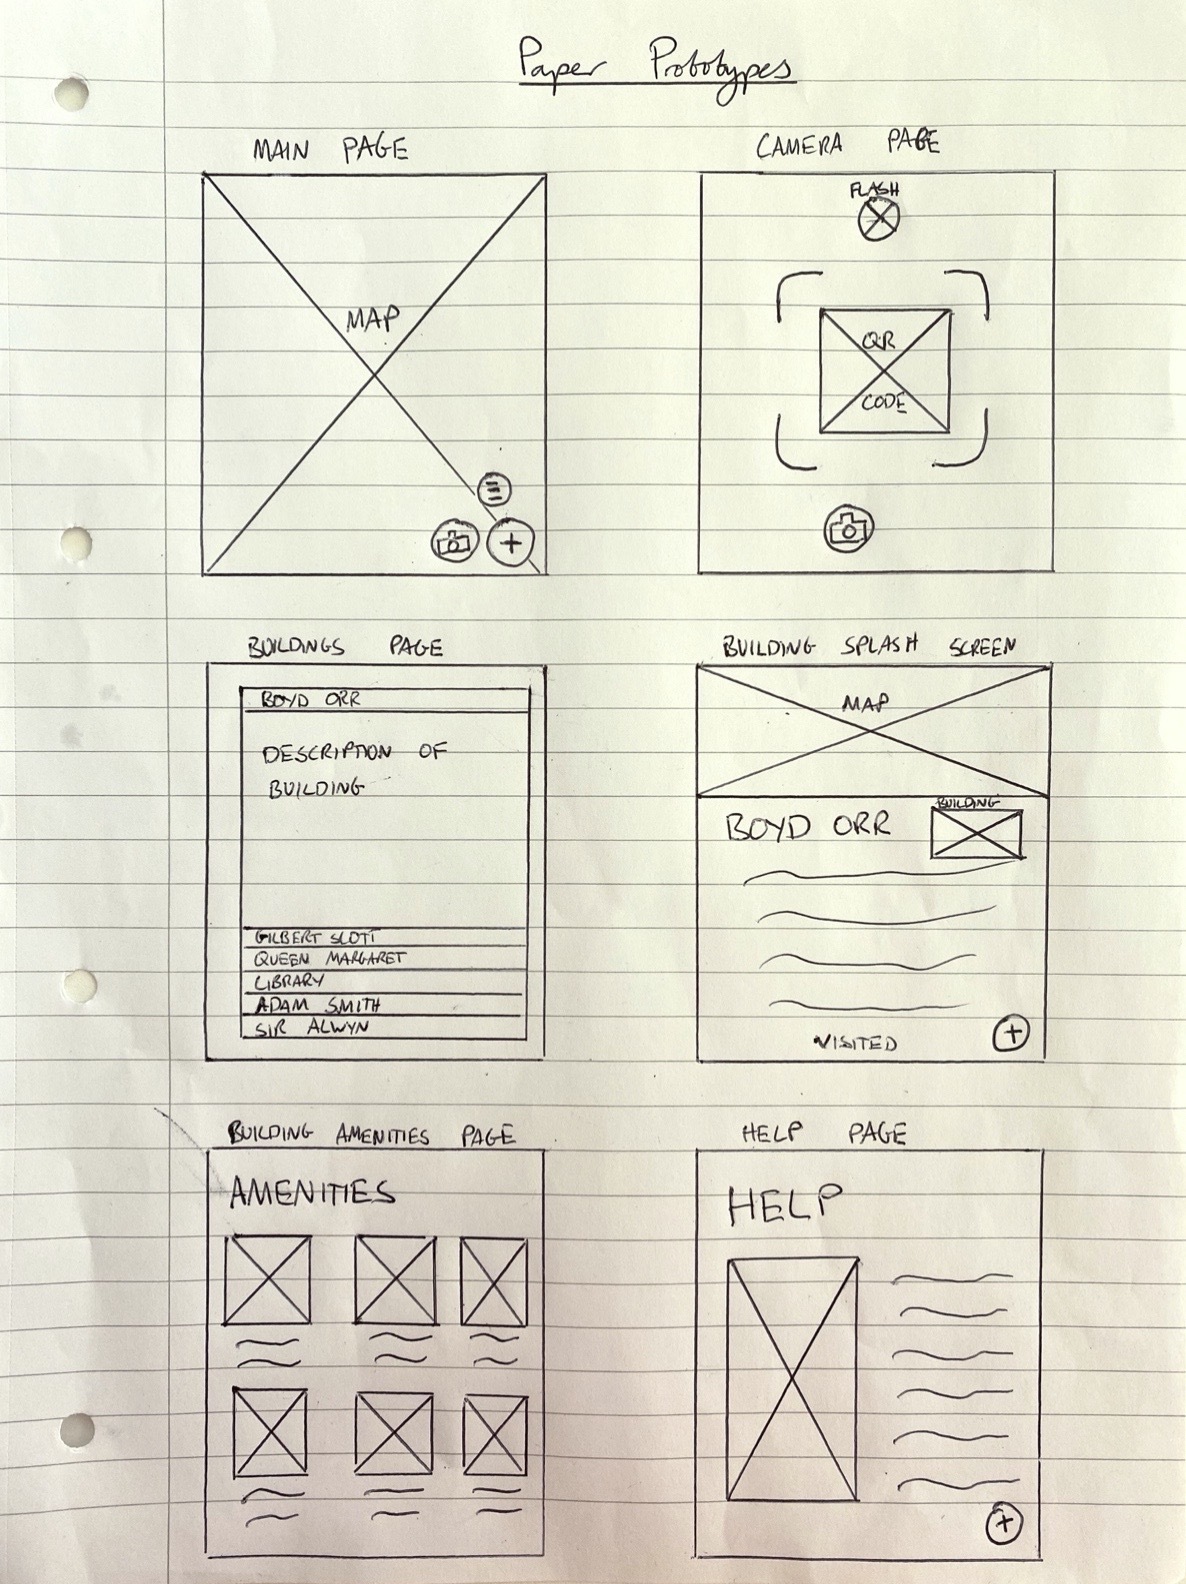 Paper Prototypes
MAIN PAGE
MAP
CAMERA PAGE
FLASH
QR
CODE
BUILDINGS PAGE
BOYD ORR
DESCRIPTION OF
BUILDING
GILBERT SCOTT
QUEEN MARGARET
LIBRARY
ADAM SMITH
SIR ALWYN
BUILDING SPLASH SCREEN
MAP
BUILDING
BOYD ORR
VISITED
BUILDING AMENITIES PAGE
AMENITIES
HELP PAGE
HELP